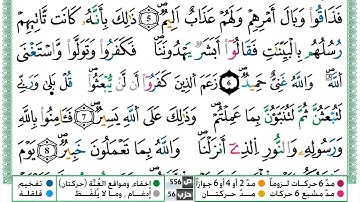 فَذَاقُواْ وَبَالَ أَمْرِهِمْ وَلَهُمْ عَذَابٌ أَلِيمٌۖ 5 ذَٰلِكَ بِأَنَّهُۥ كَانَت تَّاتِيهِمْ
رُسُلُهُم بِالْبَيِّنَٰتِ فَقَالُوٓاْ أَبَشَرٌ يَهْدُونَنَاۖ فَكَفَرُواْ وَتَوَلَّواْۖ وَّاسْتَغْنَى
اَللَّهُۖ وَاللَّهُ غَنِيٌّ حَمِيدٌۖ 6 زَعَمَ اَلذِينَ كَفَرُوٓاْ أَن لَّنْ يُّبْعَثُواْۖ قُلْ بَلَىٰ وَرَبِّے
لَتُبْعَثُنَّ ثُمَّ لَتُنَبَّؤُنَّ بِمَا عَمِلْتُمْۖ وَذَٰلِكَ عَلَى اَللَّهِ يَسِيرٌۖ 7 فَـَٔامِنُواْ بِاللَّهِ
وَرَسُولِهِۦ وَالنُّورِ اِلذِےٓ أَنزَلْنَاۖ وَاللَّهُ بِمَا تَعْمَلُونَ خَبِيرٌۖ 8 يَوْمَ
مدّ 6 حركات لزوماً مدّ 2 أو 4 أو 6 جوازاً ص 556 إخفاء، ومواقع الغُنَّة (حركتان) تفخيم
مدّ مشبع 6 حركات مدّ حركتان حزب 56 إدغام، وما لا يُلفَظ قلقلة